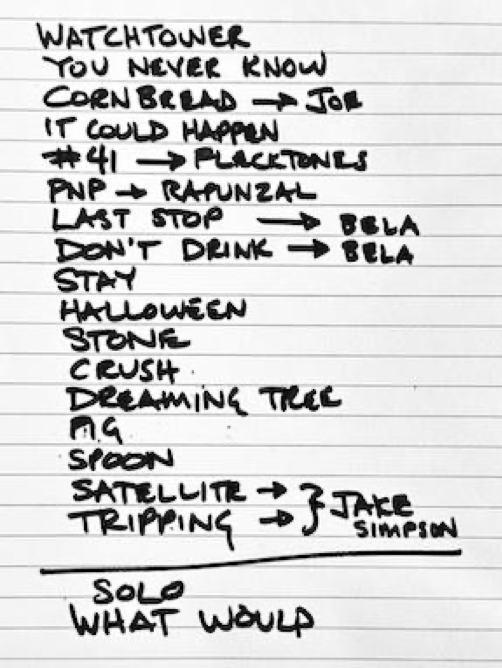 WATCHTOWER
YOU NEVER KNOW
CORNBREAD → JOE
IT COULD HAPPEN
#41 → FLECKTONES
PNP → RAPUNZAL
LAST STOP → BELA
DON'T DRINK → BELA
STAY
HALLOWEEN
STONE
CRUSH
DREAMING TREE
PIG
SPOON
SATELLITE → } JAKE
TRIPPING → SIMPSON
SOLO
WHAT WOULD